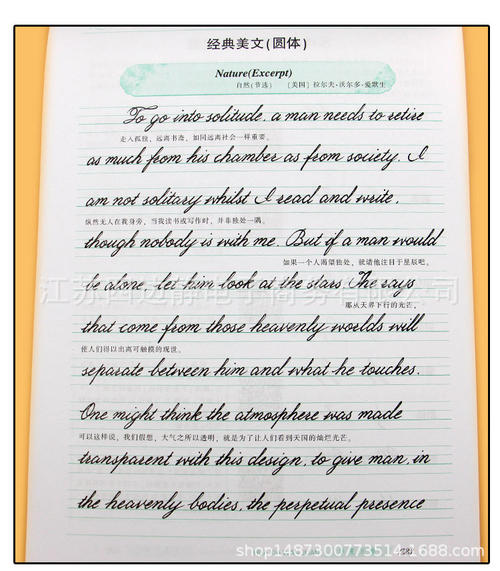 经典美文(圆体)
Nature(Excerpt)
自然(节选) [美国] 拉尔夫·沃尔多·爱默生
To go into solitude, a man needs to retire
走入孤独，远离书斋，如同远离社会一样重要。
as much from his chamber as from society. I
am not solitary whilst I read and write,
纵然无人在我身旁，当我读书或写作时，并非独处一隅。
though nobody is with me. But if a man would
如果一个人渴望独处，就请他注目于星辰吧。
be alone, let him look at the stars. The rays
那从天界下行的光芒，
that come from those heavenly worlds will
使人们得以出离可触摸的现世。
separate between him and what he touches.
One might think the atmosphere was made
可以这样说，我们假想，大气之所以透明，就是为了让人们看到天国的灿烂光芒。
transparent with this design, to give man, in
the heavenly bodies, the perpetual presence
shop1487300773514.1688.com